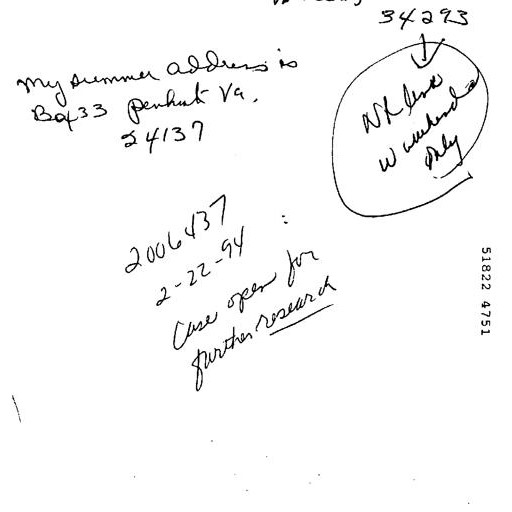 34293
My summer address is
Box 33 Penhook Va.
24137
only
2006437
2-22-94
Case open for
further research
51822 4751